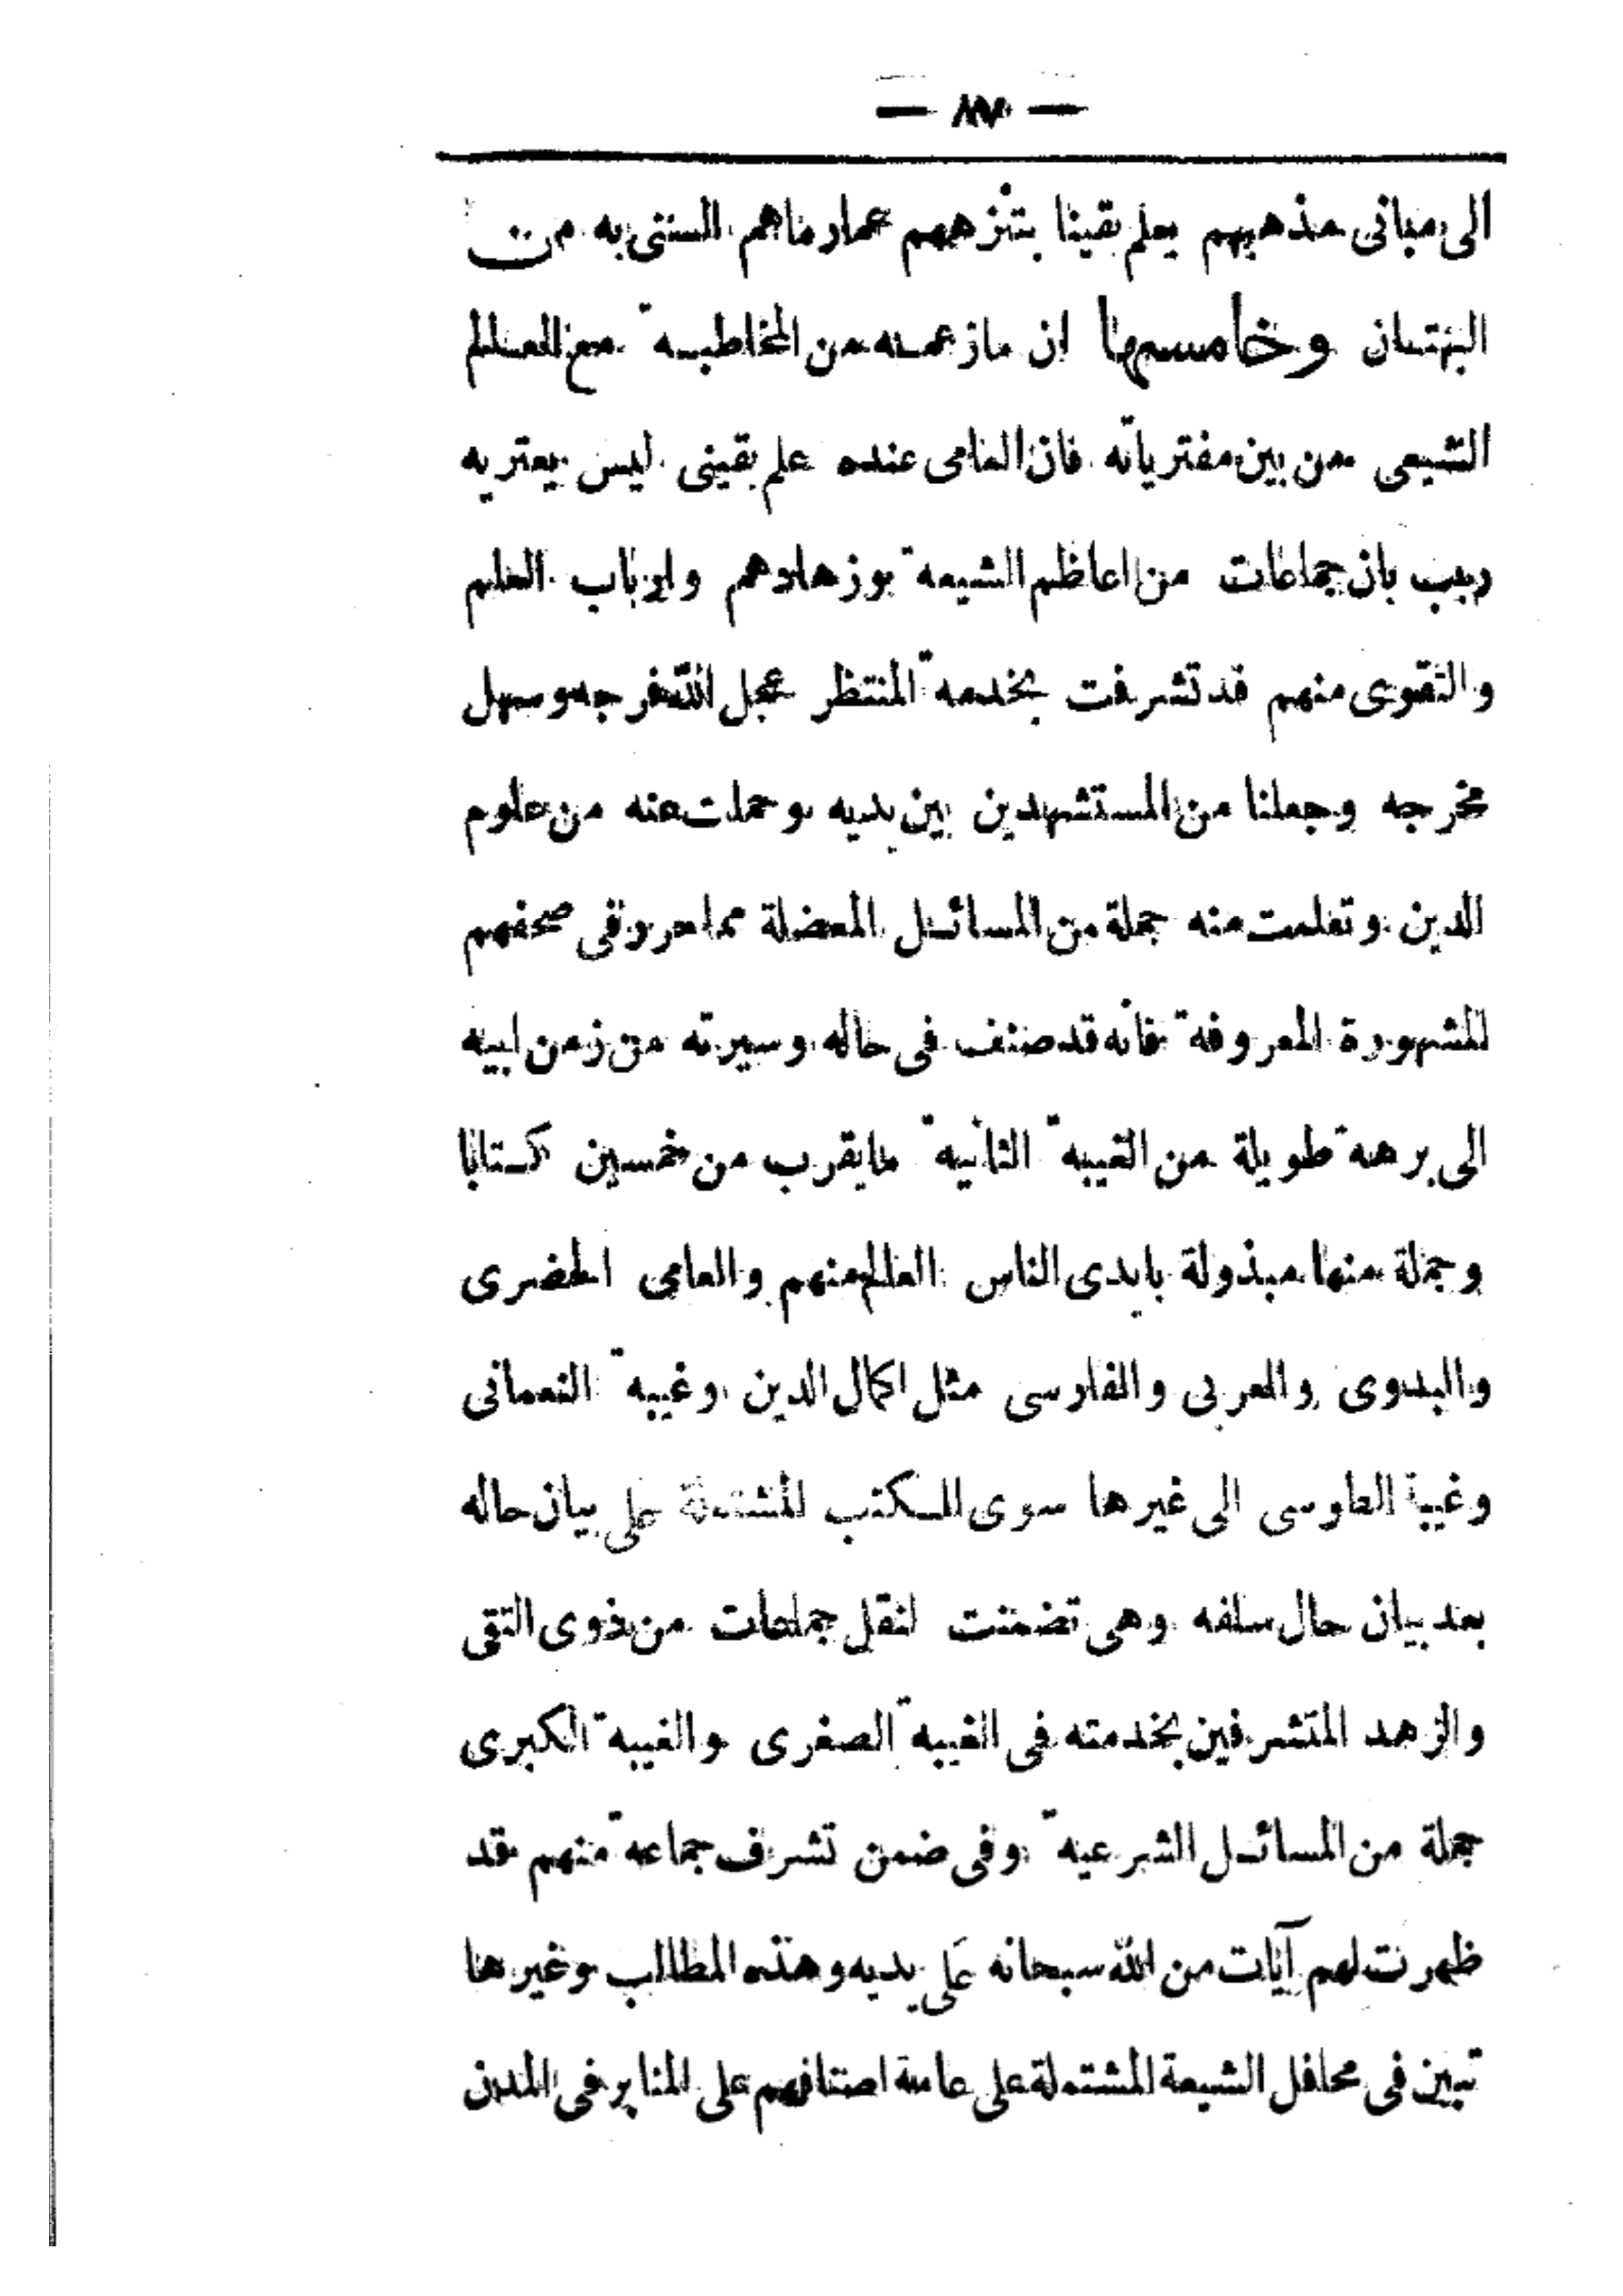 الى مبانى مذهبهم يعلم يقينا بتنزههم عمارماهم السنى به من
البهتان وخامسها ان مازعمه من المخاطبة مع العالم
الشيعى من بين مفترياته فان العامى عنده علم يقينى ليس يعتريه
ريب بان جماعات من اعاظم الشيعة وزهادهم وارباب العلم
والتقوى منهم قد تشرفت بخدمة المنتظر عجل الله فرجه وسهل
مخرجه وجعلنا من المستشهدين بين يديه وحملت عنه من علوم
الدين وتعلمت منه جملة من المسائل المعضلة مما حرر وفى صحفهم
المشهورة المعروفة فانه قد صنف فى حاله وسيرته من زمن ابيه
الى برهة طويلة من الغيبة الثانية ما يقرب من خمسين كتابا
وجملة منها مبذولة بايدى الناس العالم منهم والعامى الحضرى
والبدوى والعربى والفارسى مثل اكمال الدين وغيبة النعمانى
وغيبة الطوسى الى غيرها سوى الكتب المشتملة على بيان حاله
بعد بيان حال سلفه وهى تضمنت لنقل جماعات من ذوى التقى
والزهد المتشرفين بخدمته فى الغيبة الصغرى والغيبة الكبرى
جملة من المسائل الشرعية وفى ضمن تشرف جماعة منهم قد
ظهرت لهم آيات من الله سبحانه على يديه وهذه المطالب وغيرها
تبين فى محافل الشيعة المشتملة على عامة اصنافهم على المنابر فى المدن